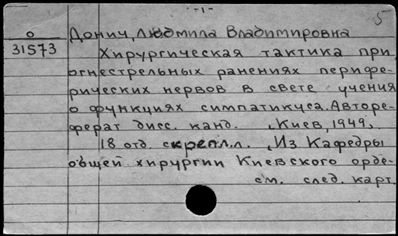 -1-
5
О
31573
Донич, Людмила Владимировна
Хирургическая тактика при
огнестрельных ранениях перифе-
рических нервов в свете учения
о функциях симпатикуса. Авторе-
ферат дисс. канд. , Киев, 1949.
18 отд. скрепл. л. , Из Кафедры
общей хирургии Киевского орде-
см. след. карт.